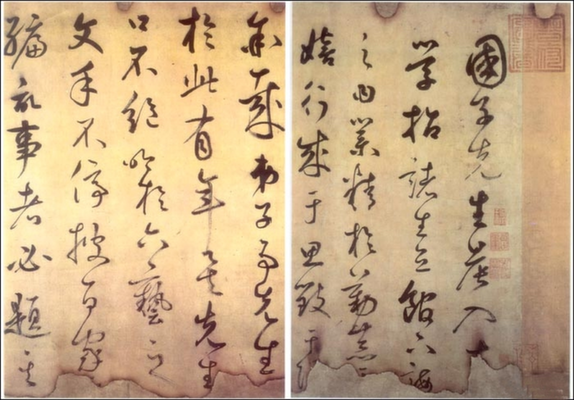 國子先生晨入
學招諸生立館下誨
之曰業精於勤荒
嬉行成于思毀于
余哉弟子事先生
於此有年矣先生
口不絕吟於六藝之
文手不停披百家
編記事者必題其